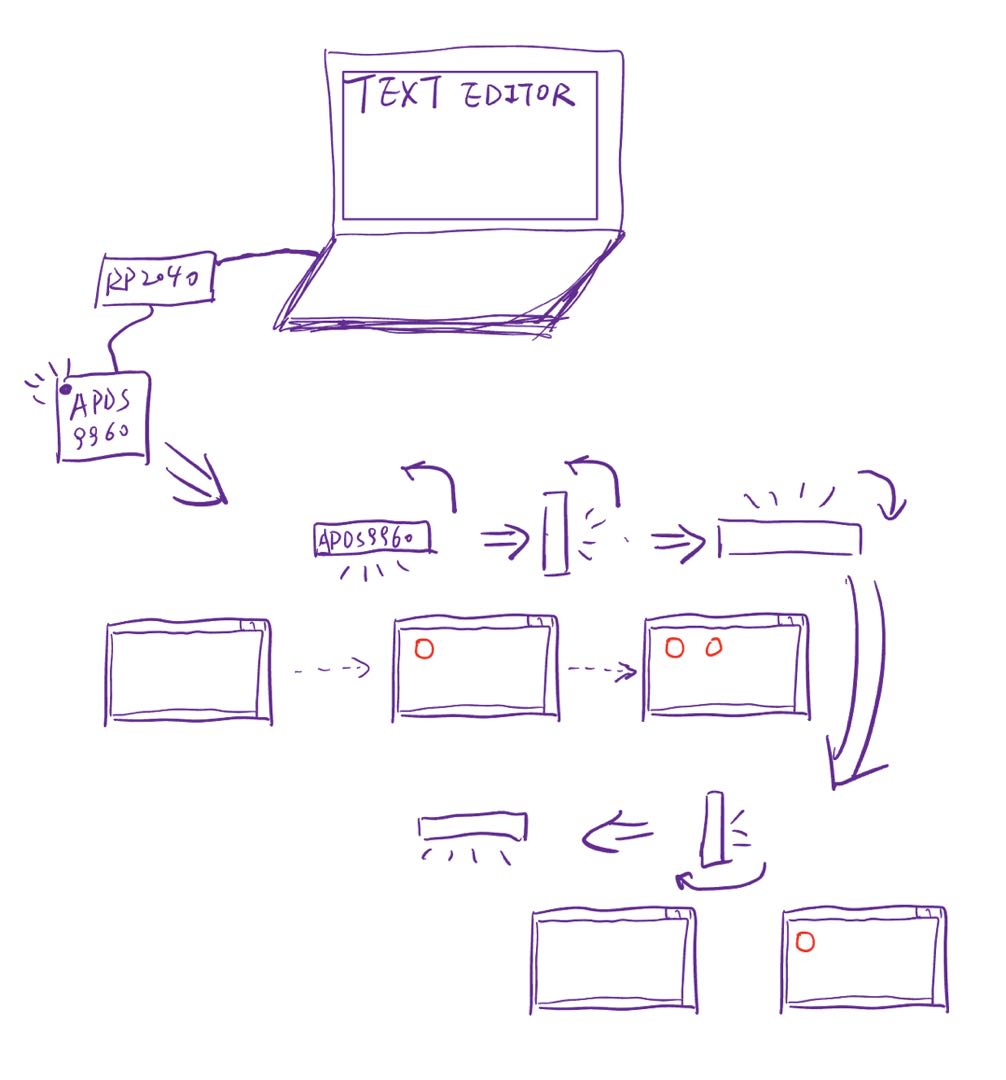 TEXT EDITOR
RP2040
APDS
9960
APDS9960